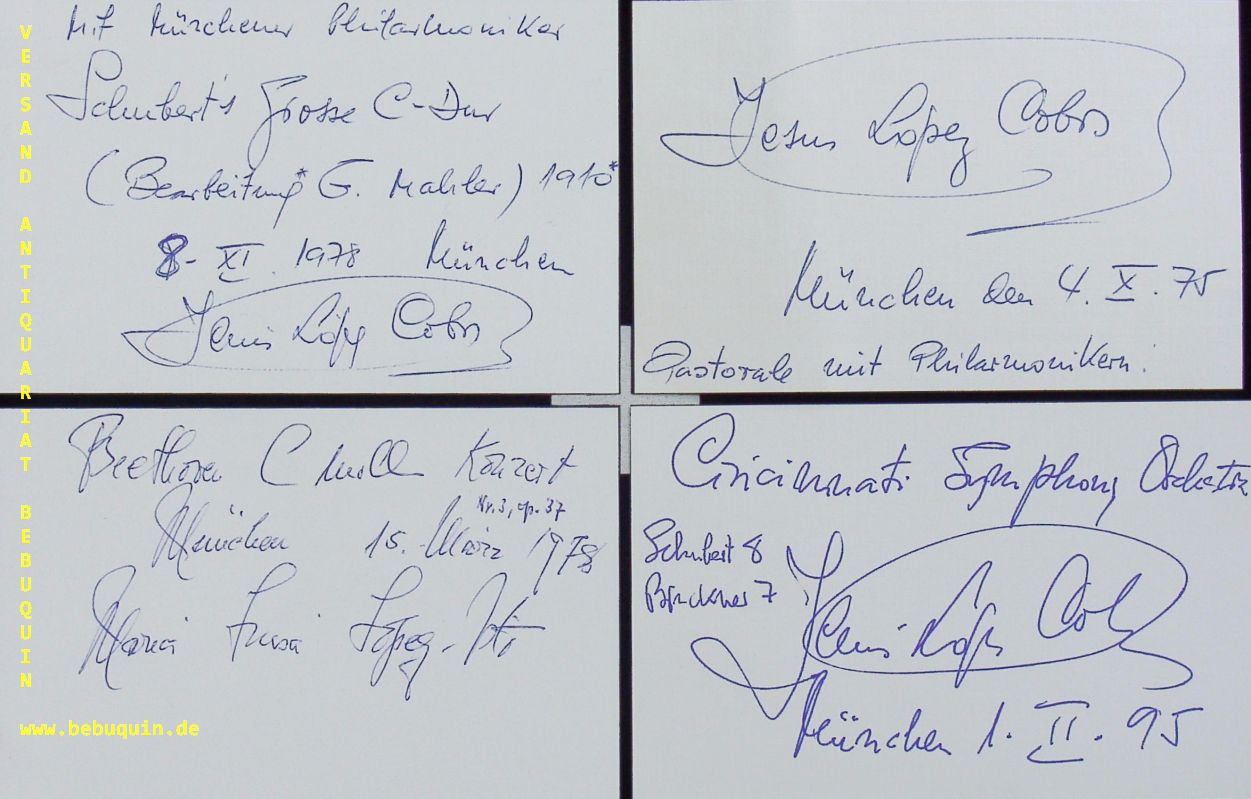 VERSAND ANTIQUARIAT BEBUQUIN
www.bebuquin.de
Mit Münchener Philarmoniker
Schubert's Grosse C-Dur
(Bearbeitung* G. Mahler) 1910*
8. XI. 1978 München
Jesus López Cobos
Jesus López Cobos
München den 4. X. 75
Pastorale mit Philarmonikern.
Beethoven C moll Konzert
Nr. 3, op. 37
München 15. März 1978
Maria Luisa Lopez-
Cincinnati Symphony Orchestra
Schubert 8
Bruckner 7
Jesus López Cobos
München 1. II. 95